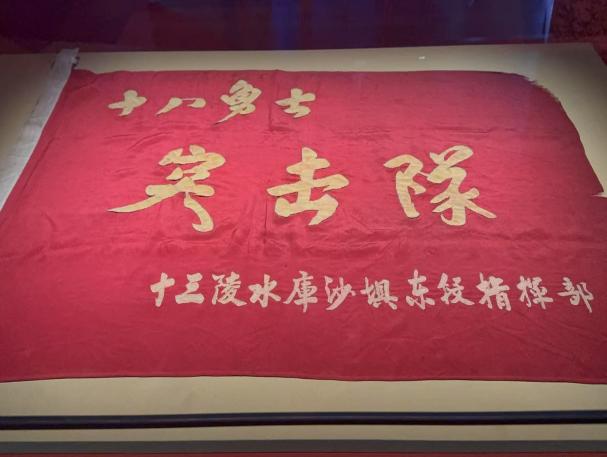 十八勇士
突击队
十三陵水庫沙埧东段指揮部